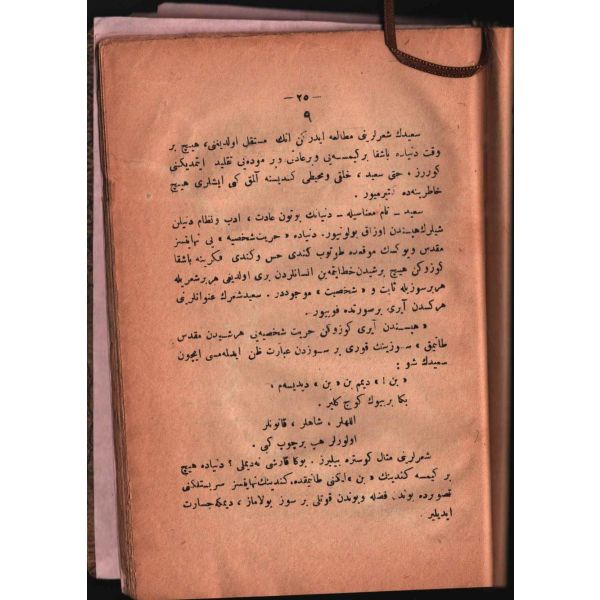 — ٢٥ —
٩
سعیدك شعرلرینی مطالعه ایدرکن انك مستقل اولدیغنی، هیچ بر
وقت دنیاده باشقا برکیمسه‌یی وبرعادتی و بر موده‌یی تقلید ایتمدیکنی
کوررز. حتی سعید، خلقی ومحیطی کندیسنه آلق کبی ایشلری هیچ
خاطرینه‌ده کتیرمیور.
سعید – تام معناسیله – دنیانك بوتون عادت، ادب ونظام دنیلن
شیلرك هپسندن اوزاق بولونیور. دنیاده « حریت شخصیه » یی نهایه‌سز
مقدس ویوکسك موقعده طوتوب کندی حس وکندی فکرینه باشقا
کوزوکن هیچ برشیدن خط ایتمه‌ین انسانلردن بری اولدیغی هربرشعریله
هربرسوزیله ثابت و « شخصیت » موجوددر. سعید شعرك عنوانلرینی
هرکسدن آیری، برصورتده قوییور.
« هپسندن آیری کوزوکن حریت شخصیه‌یی هرشیدن مقدس
طانیمق » سوزینك قوری بر سوزدن عبارت ظن ایدلمه‌مسی ایچون
سعیدك شو :
« بن ! » دیم بن « بن » دیدیسه‌م،
بکا بربیوك کوچ کلیر.
اللهلر، شاهلر، قانونلر
اولورلر هپ برچوپ کبی.
شعرلرینی مثال کوستره بیلیرز. بوکا قارشی نه‌دیملی ؟ دنیاده هیچ
بر کیمسه کندینك « بن » لکنی طانیمقده، کندینك نهایه‌سز سربستلکنی
تصورده بوندن فضله وبوندن قوتلی بر سوز بولاماز، دیمکه جسارت
ایدیلیر.